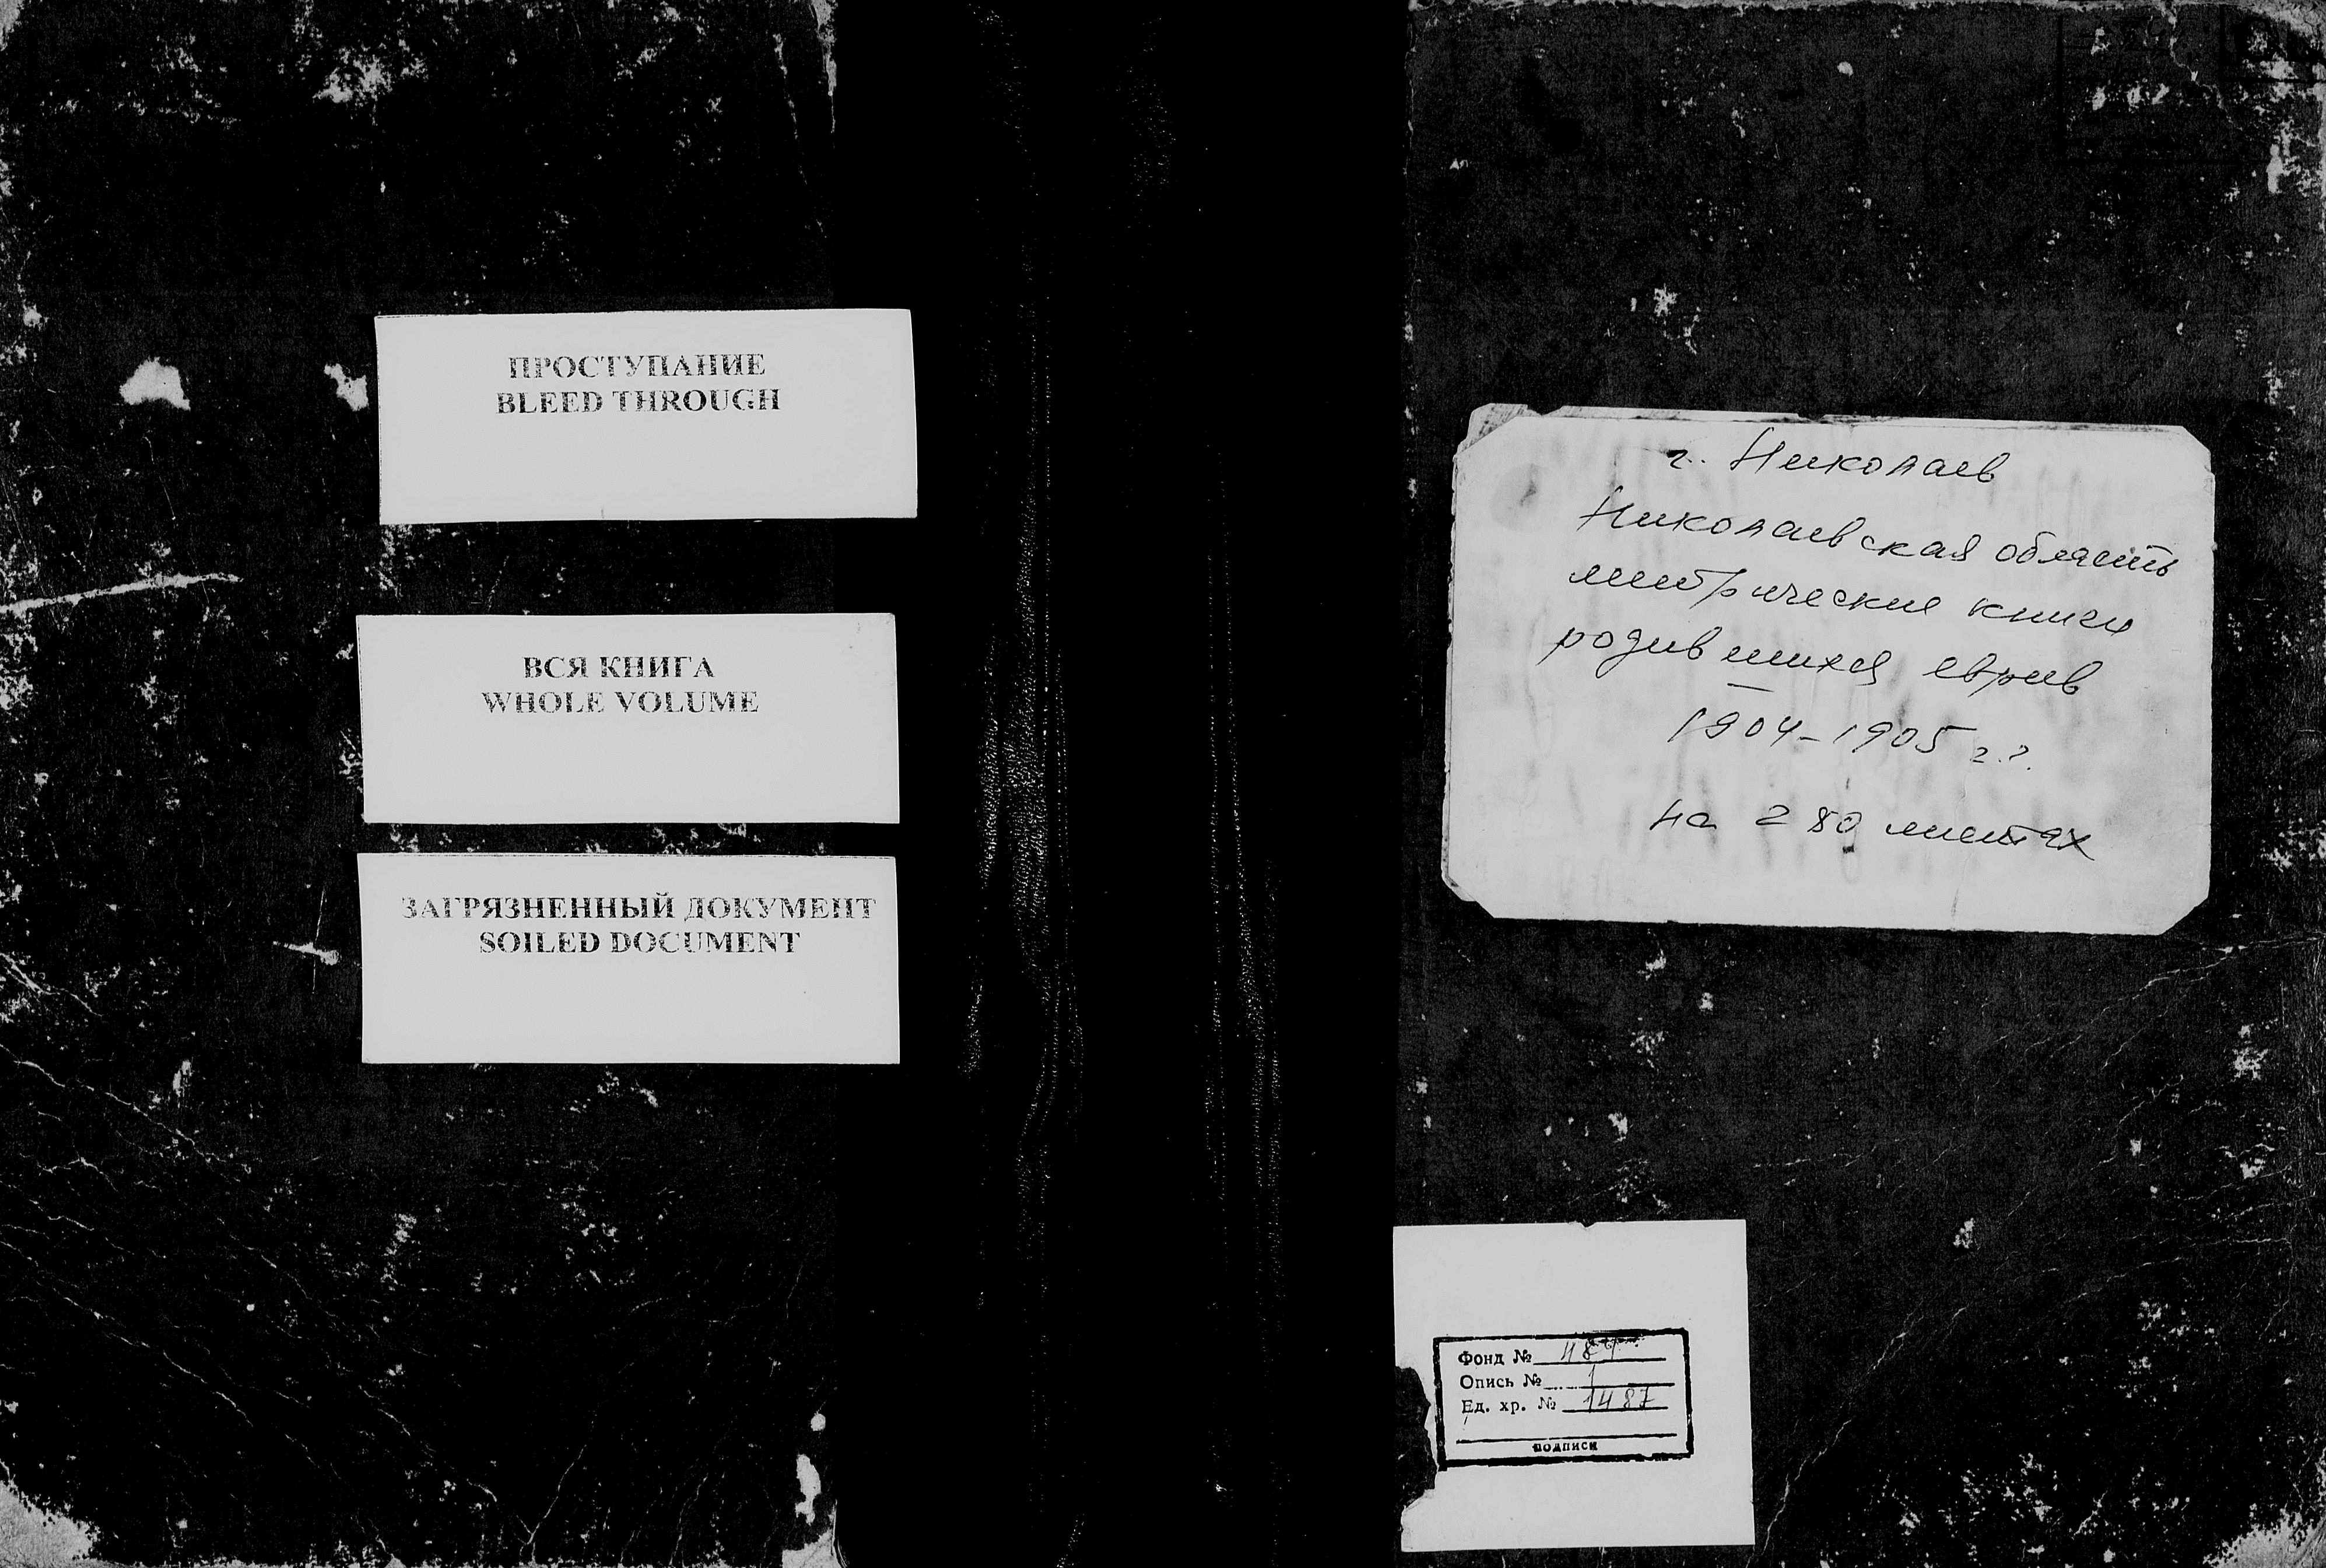 ПРОСТУПАНИЕ
BLEED THROUGH
ВСЯ КНИГА
WHOLE VOLUME
ЗАГРЯЗНЕННЫЙ ДОКУМЕНТ
SOILED DOCUMENT
г. Николаев
Николаевская область
метрические книги
родившихся евреев
1904-1905 г.г.
на 280 листах
Фонд № 484
Опись № 1
Ед. хр. № 1487
подписи